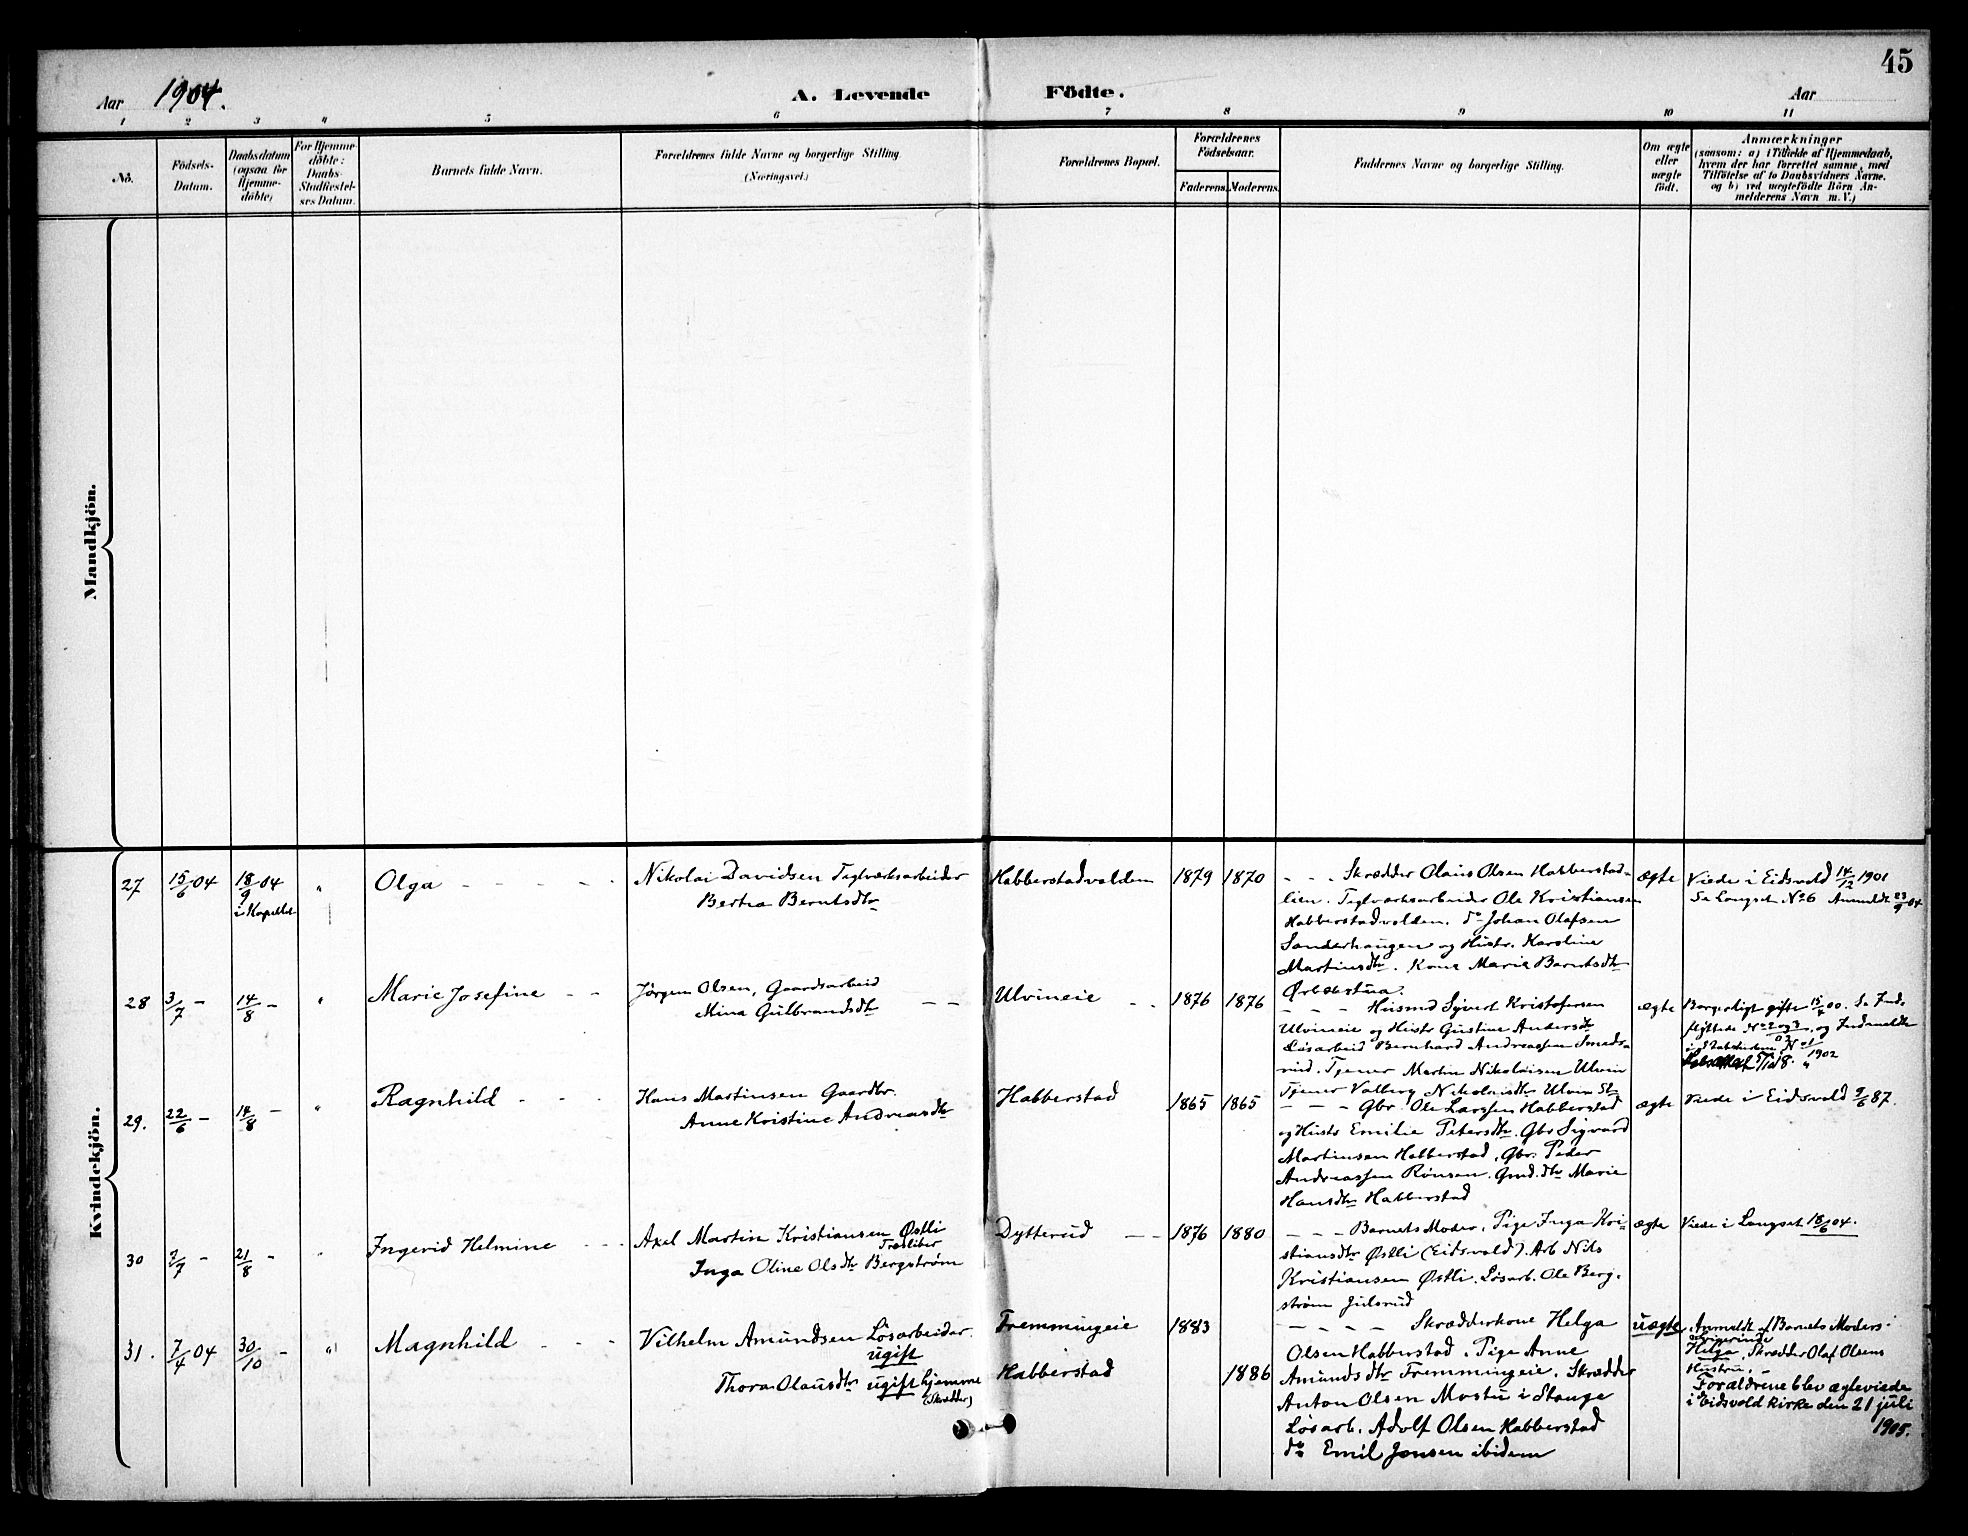 45
Aar 1904. A. Levende Födte. Aar
1 2 3 4 5 6 7 8 9 10 11
No.
Födsels-
Datum.
Daabsdatum
(ogsaa for
Hjemme-
döbte)
For Hjemme-
döbte:
Daabs-
Stadfæstel-
ses Datum.
Barnets fulde Navn.
Forældrenes fulde Navne og borgerlige Stilling
(Næringsvei.)
Forældrenes Bopæl.
Forældrenes
Födselsaar.
Faderens. Moderens.
Faddernes Navne og borgerlige Stilling.
Om ægte
eller
uægte
födt.
Anmærkninger
(saasom: a) i Tilfælde af Hjemmedaab,
hvem der har forrettet samme, med
Tilföielse af to Daabsvidners Navne.
og b) ved uægtefödte Börn An-
melderens Navn m. V.)
Mandkjön.
Kvindekjön.
27 15/6 04 18/9 04 " Olga - - - - -
i Kapellet
Nikolai Davidsen Teglverksarbeider
Bertha Berntsdtr
Habberstadvolden 1879 1870
- - - Skrædder Olaus Olsen Habberstad-
lien. Teglverksarbeider Ole Kristiansen
Habberstadvolden. do Johan Olafsen
Sanderhaugen og Hustr. Karoline
Martinsdtr. Kone Marie Berntsdtr
Ørbekstua.
ægte
Viede i Eidsvold 14/12 1901
Se Langset No 6 Anmeldt 23/9 04
28 3/7 - 14/8 - " Marie Josefine - -
Jørgen Olsen, Gaardsarbeid
Mina Gulbrandsdtr - -
Ulvineie - - 1876 1876
- - - Husmd Syvert Kristofersen
Ulvineie og Hustr Gustine Andersdtr
Løsarbeid Bernhard Andreassen Smeds-
rud. Tjener Martin Nikolaisen Ulvin
Tjener Valborg Nikolaisdtr Ulvin
ægte
Borgerligt gifte 15/4 00. Se Ind-
flyttede No 2 og 3, og Indmeldte
i Statskirken No 1
1902
29. 22/6 - 14/8 - " Ragnhild - - -
Hans Martinsen Gaardbr.
Anne Kristine Andreasdtr
Habberstad 1865 1865
- - - Gbr. Ole Larssen Habberstad
og Hustr Emilie Petersdtr. Gbr Sigvard
Martinsen Habberstad. Gbr. Peder
Andreassen Rønsen. Gmd.dtr Marie
Hansdtr Habberstad
ægte
Viede i Eidsvold 9/6 87.
30 7/7 - 21/8 - " Ingerid Helmine - - -
Axel Martin Kristiansen Østli
Træsliber
Inga Oline Olsdtr Bergstrøm
Dytterud - - 1876 1880
- - - Barnets Moder. Pige Inga Kri-
stiansdtr Østli (Eidsvold). Arb Nils
Kristiansen Østli. Løsarb. Ole Berg-
strøm Julsrud
ægte
Viede i Langset 18/6 04.
31. 7/4 04 30/10 - " Magnhild - - -
Vilhelm Amundsen Løsarbeider.
ugift
Thora Olausdtr ugift hjemme
(Skrædder)
Fremmingeie 1883
Habberstad 1886
- - - - Skrædderkone Helga
Olsen Habberstad. Pige Anne
Amundsdtr Fremmingeie. Skrædder
Anton Olsen Mostu i Stange
Løsarb. Adolf Olsen Habberstad
do Emil Jensen ibidem
uægte
Anmeldt af Barnets Moders
Svigerinde
Helga, Skrædder Olaf Olsens
Hustru. -
Forældrene blev ægteviede
i Eidsvold kirke den 21 juli
1905.